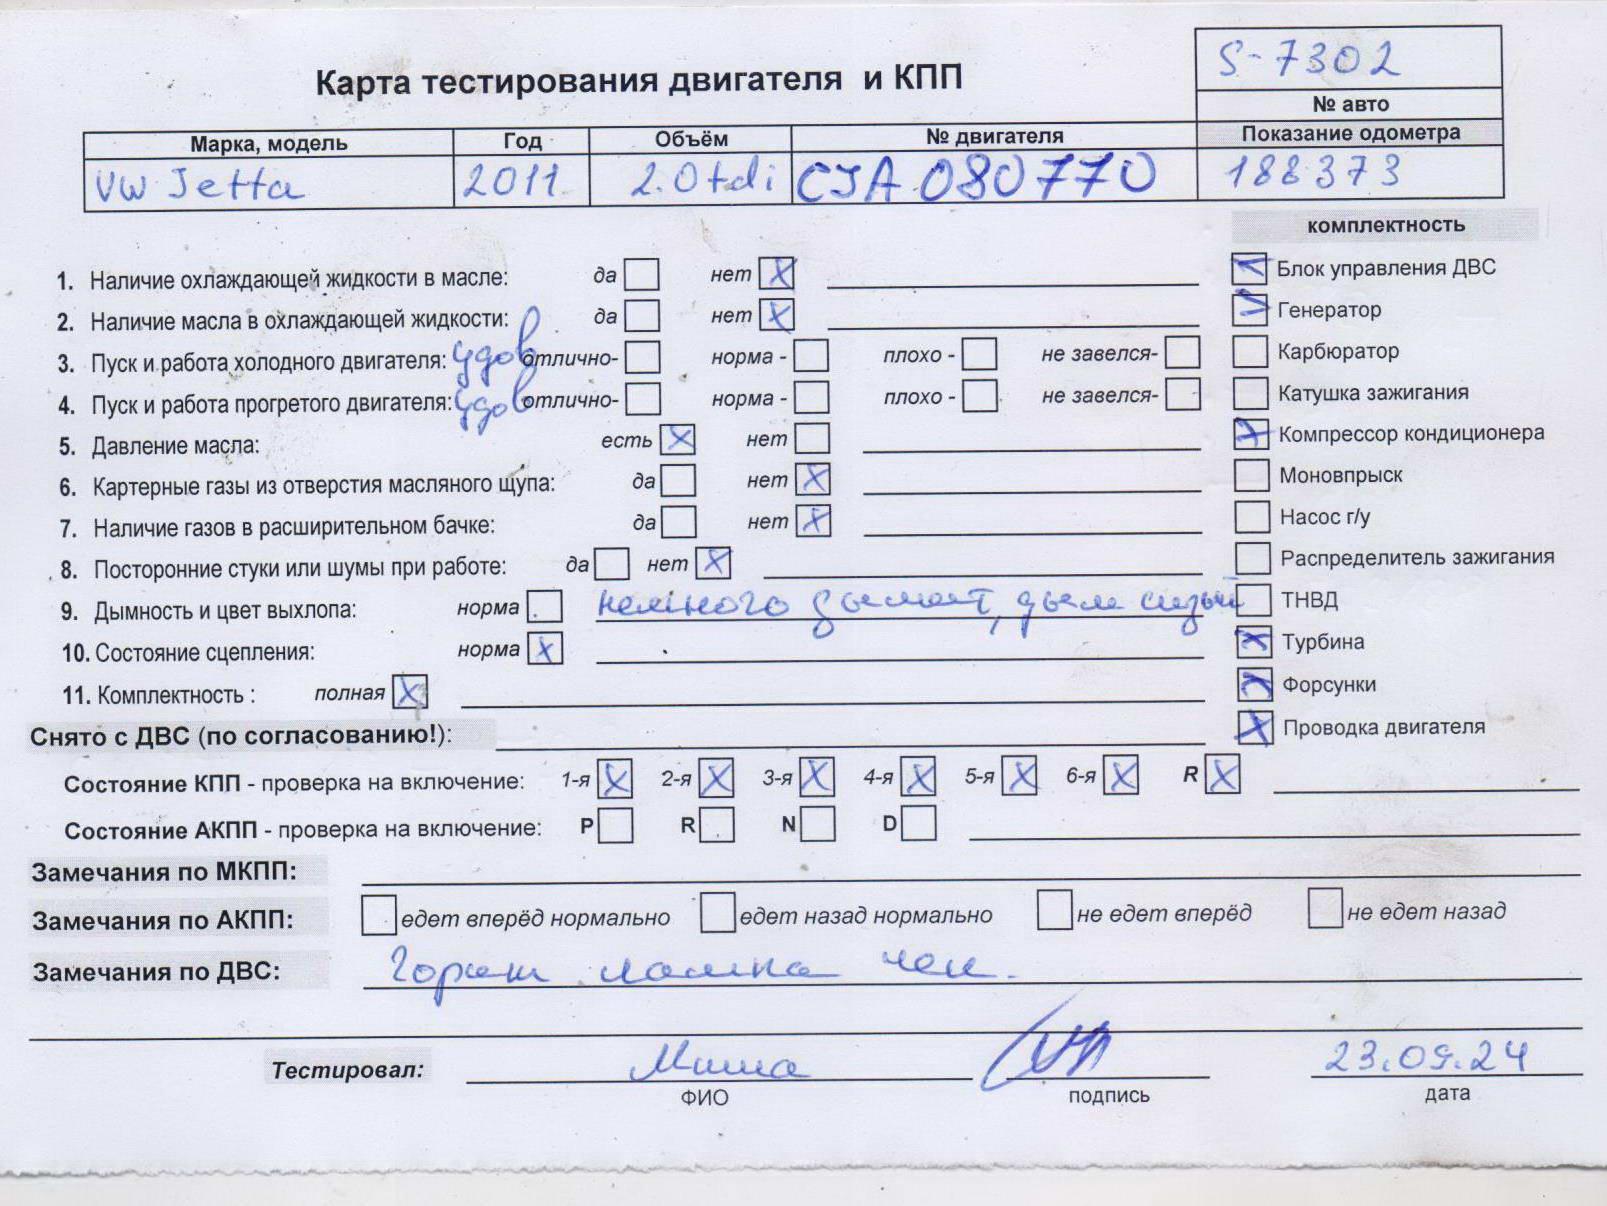 S-7302
Карта тестирования двигателя и КПП
№ авто
Марка, модель Год Объём № двигателя Показание одометра
VW Jetta 2011 2.0 tdi CJA 080770 188373
комплектность
1. Наличие охлаждающей жидкости в масле: да нет X
Блок управления ДВС
2. Наличие масла в охлаждающей жидкости: да нет X
Генератор
3. Пуск и работа холодного двигателя: удов отлично- норма - плохо - не завелся-
Карбюратор
4. Пуск и работа прогретого двигателя: удов отлично- норма - плохо - не завелся-
Катушка зажигания
5. Давление масла: есть X нет
Компрессор кондиционера
6. Картерные газы из отверстия масляного щупа: да нет X
Моновпрыск
7. Наличие газов в расширительном бачке: да нет X
Насос г/у
8. Посторонние стуки или шумы при работе: да нет X
Распределитель зажигания
9. Дымность и цвет выхлопа: норма немного дымит, дым сизый
ТНВД
10. Состояние сцепления: норма X
Турбина
11. Комплектность : полная X
Форсунки
Снято с ДВС (по согласованию!):
Проводка двигателя
Состояние КПП - проверка на включение: 1-я X 2-я X 3-я X 4-я X 5-я X 6-я X R X
Состояние АКПП - проверка на включение: P R N D
Замечания по МКПП:
Замечания по АКПП: едет вперёд нормально едет назад нормально не едет вперёд не едет назад
Замечания по ДВС: Горит лампа чек.
Тестировал: Миша 23.09.24
ФИО подпись дата